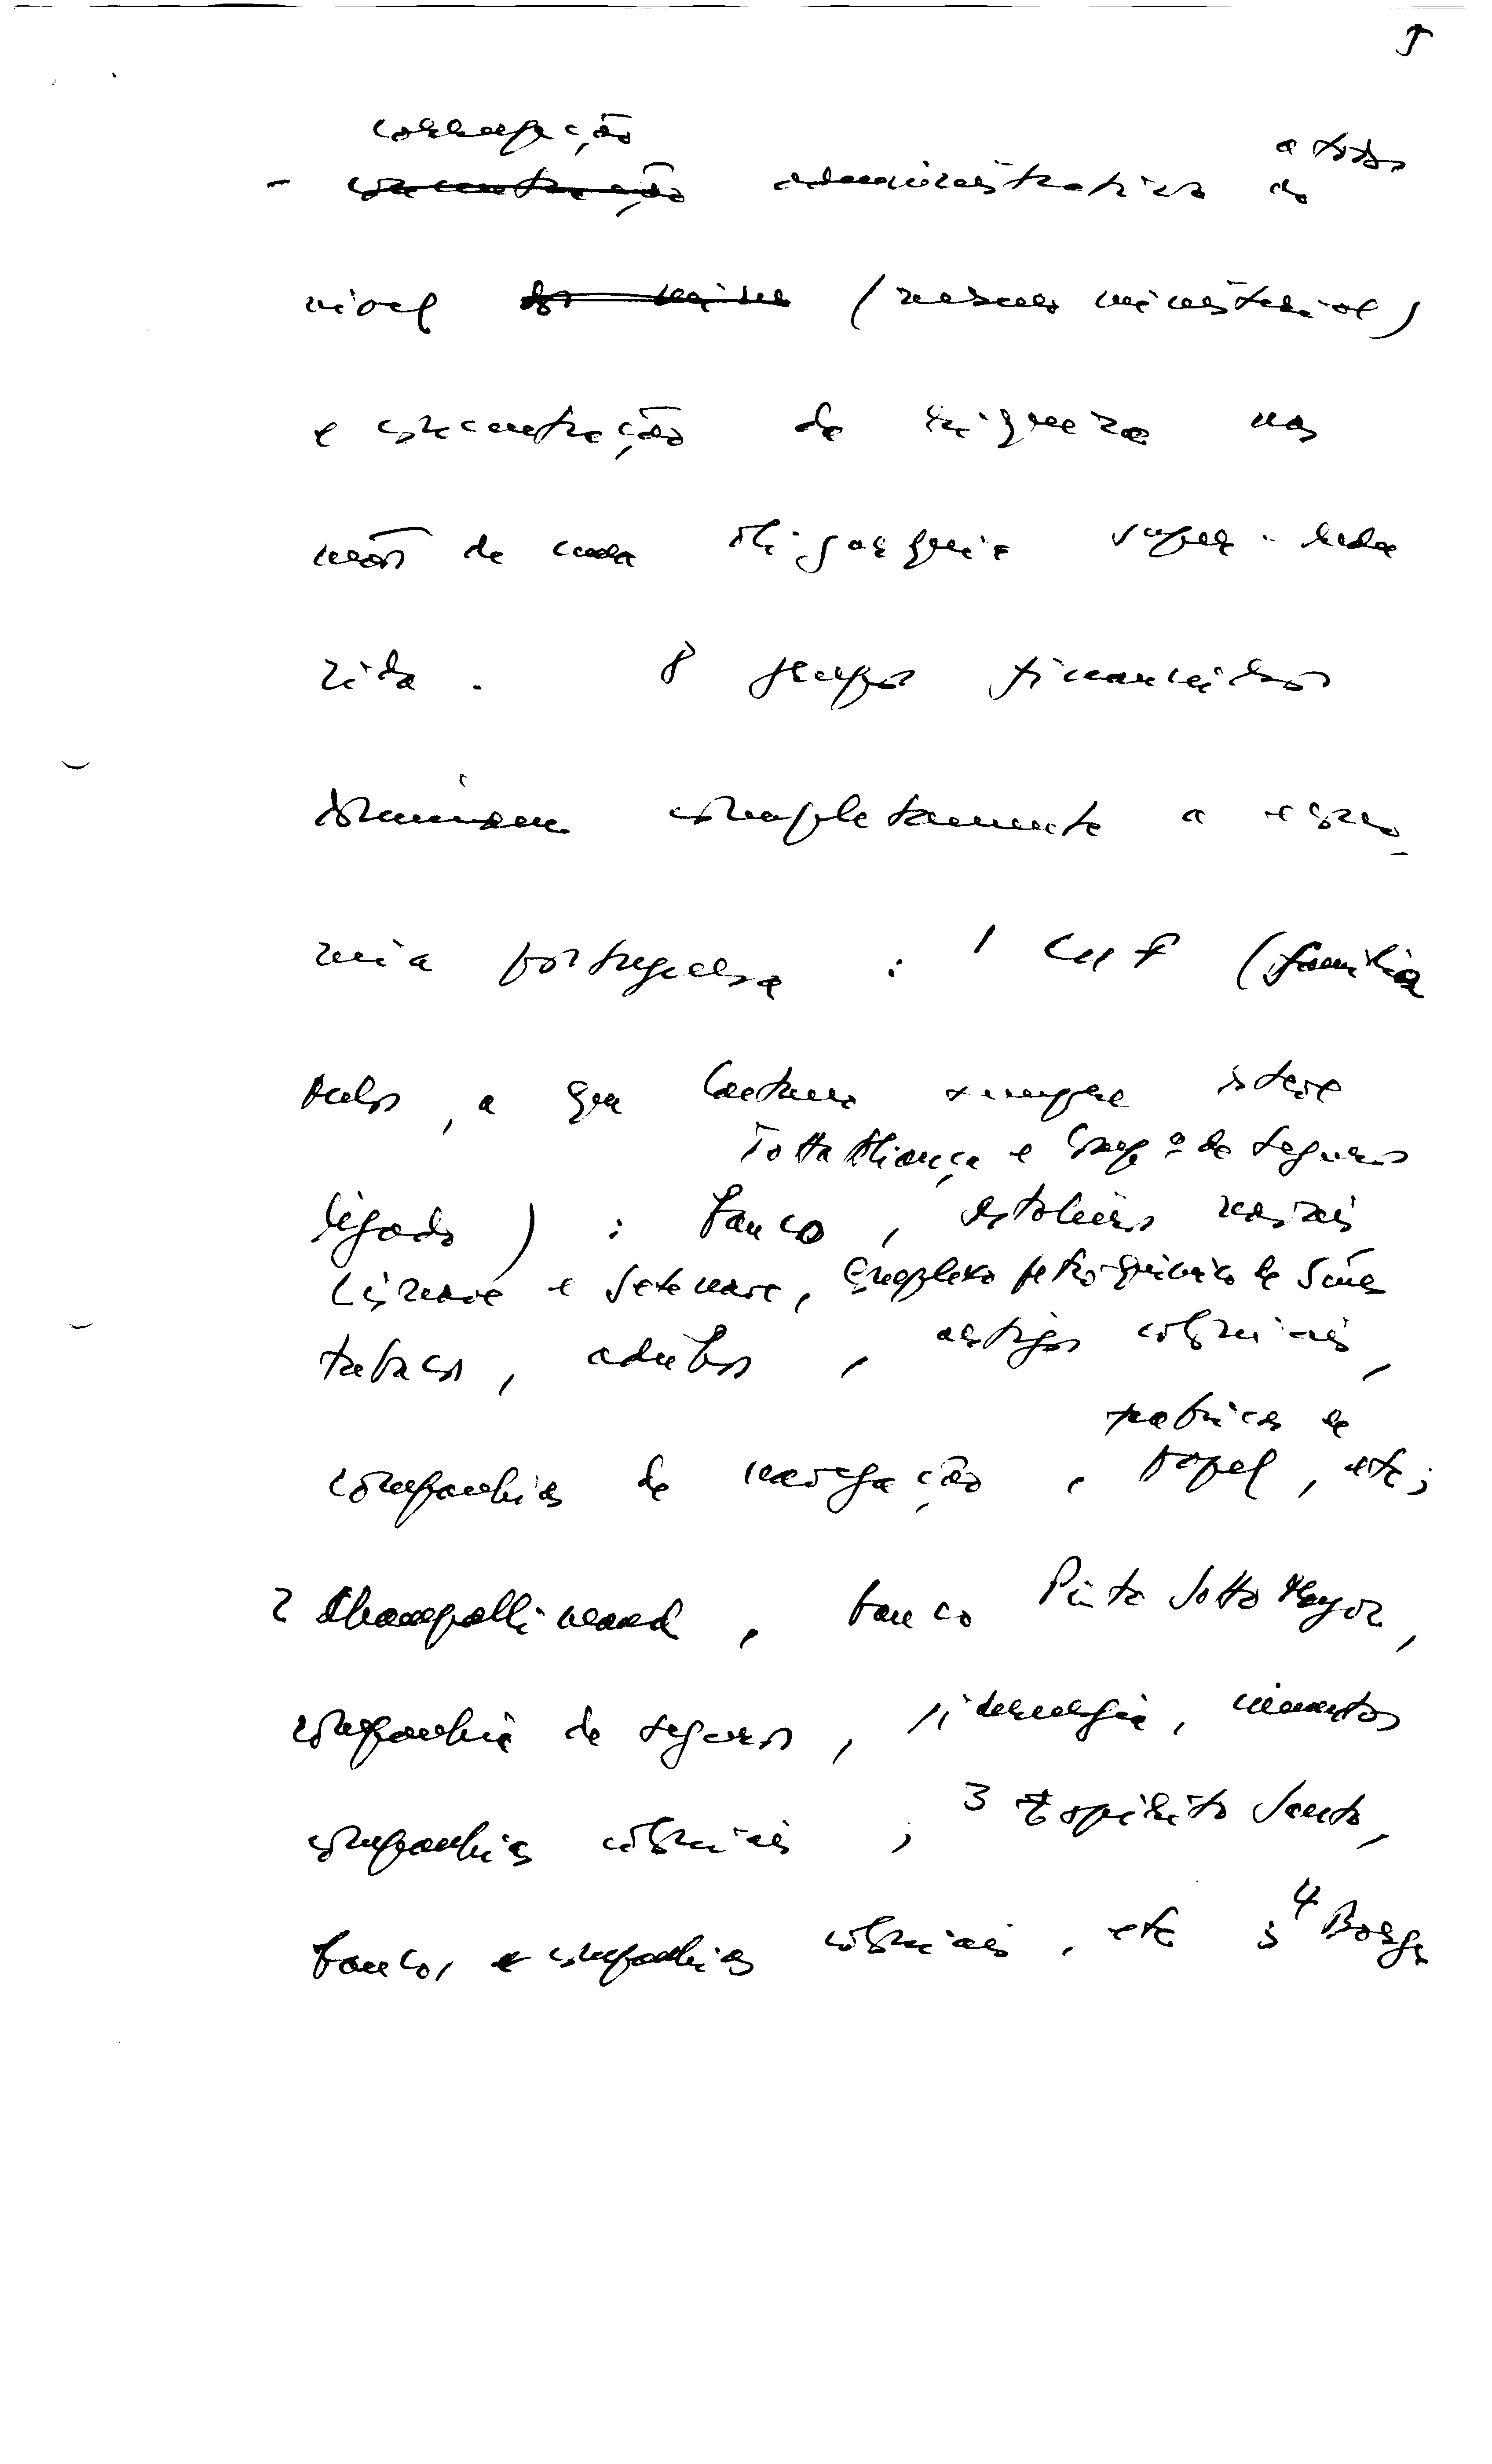 5
corrupção
- concentração administrativa a todos o
nível do minis (mesmo ministerial)
e concentração de riqueza nas
mãos de uma oligarquia super-redu
zida. 8 grupos financeiros
dominam completamente a econo
mia portuguesa : 1 CUF (família
Melo, a que Caetano sempre esteve
Totta Aliança e Comp.ª de seguros
ligado) : banco, estaleiros navais
Lisnave e Setenave, Complexo petro-químico de Sines
tabacos, adubos, artigos coloniais,
fábricas de
companhias de navegação, papel, etc;
2 Champallimaud, banco Pinto Sotto Mayor,
companhia de seguros, siderurgia, cimentos
companhias coloniais ; 3 Espírito Santo,
banco, e companhias coloniais, etc ; 4 Borges